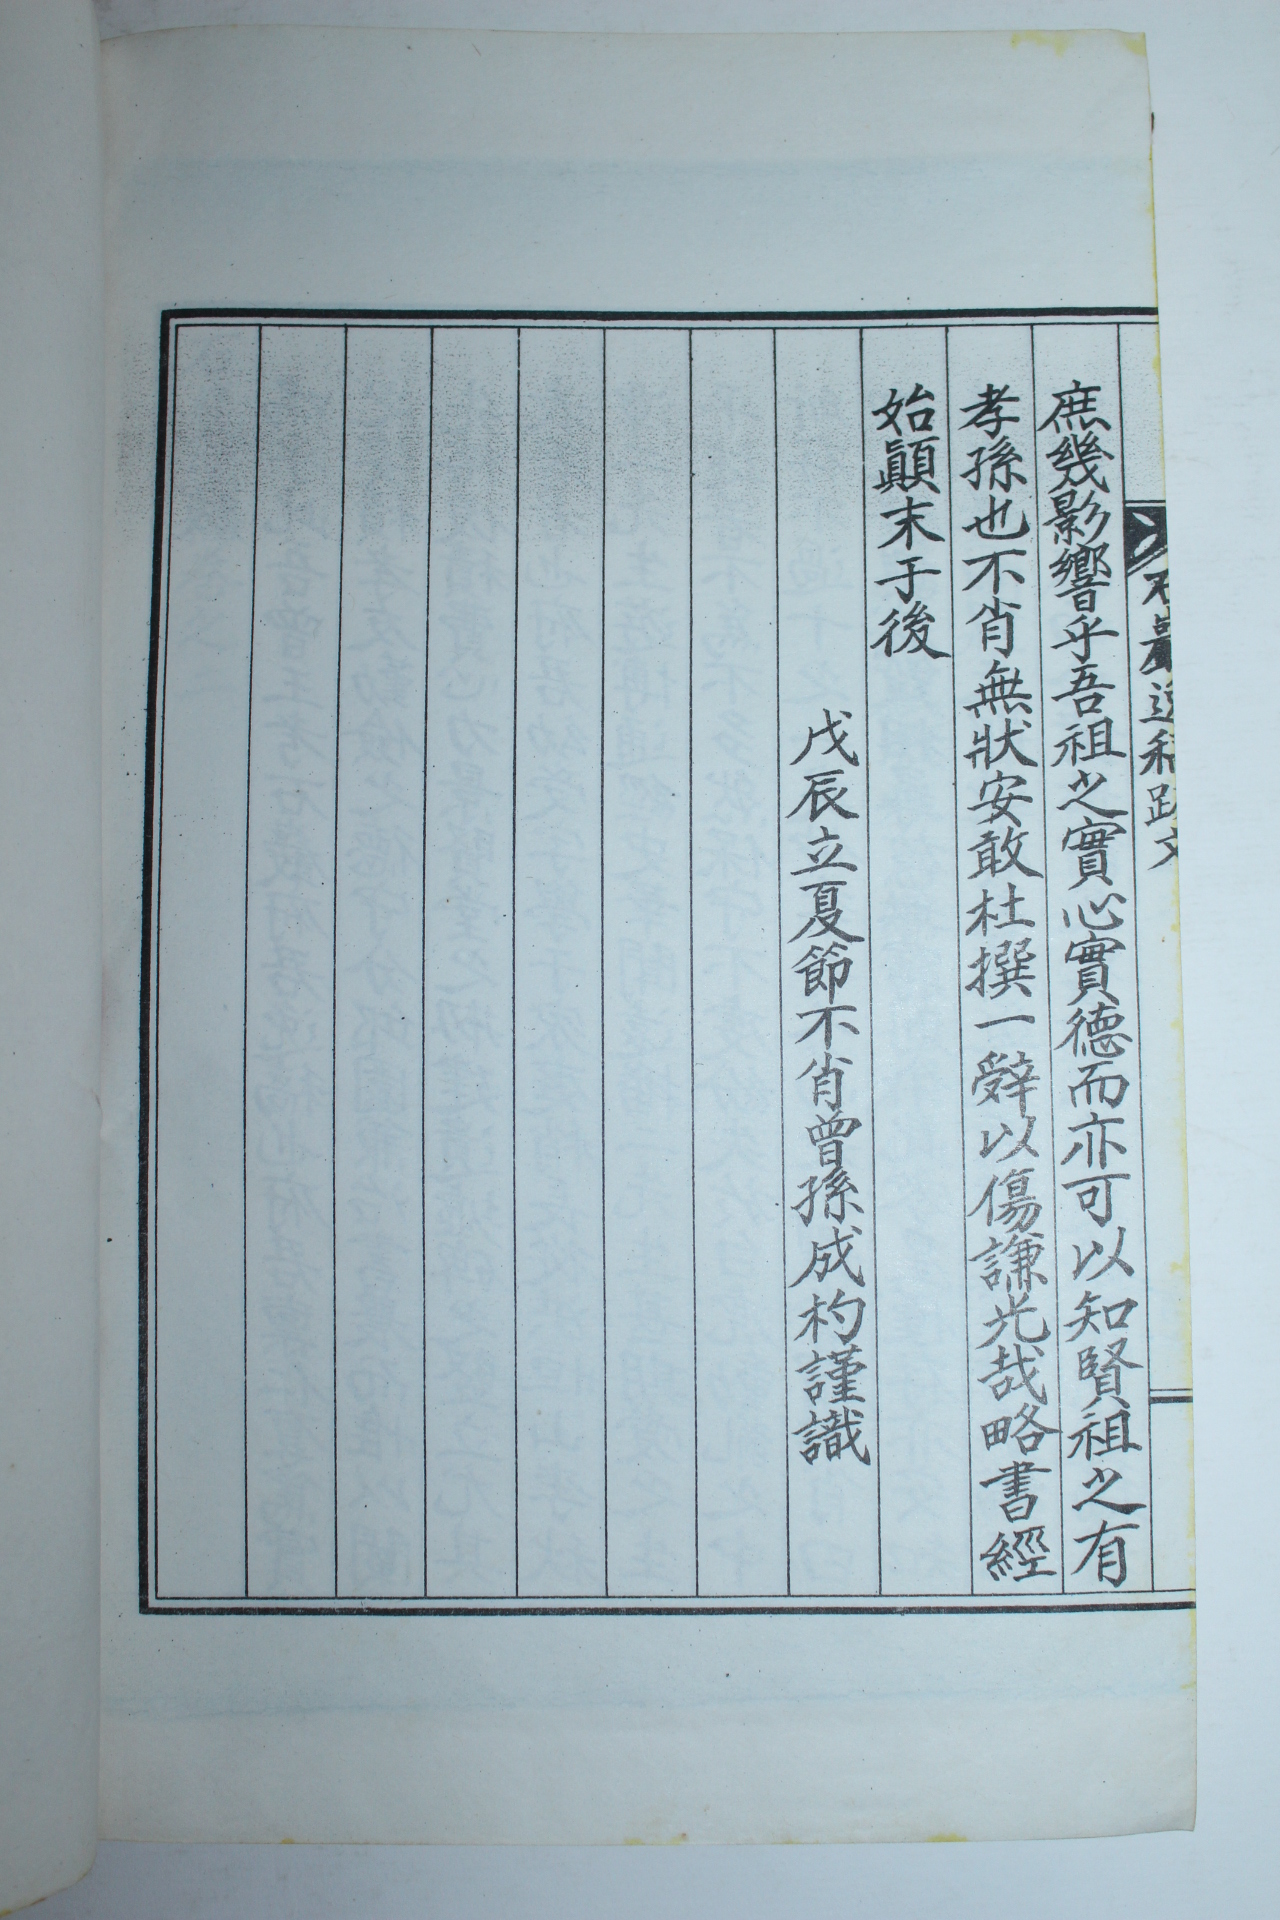 石巖逸稿跋文
庶幾影響乎吾祖之實心實德而亦可以知賢祖之有
孝孫也不肖無狀安敢杜撰一辭以傷謙光哉略書經
始顚末于後
戊辰立夏節不肖曾孫成杓謹識